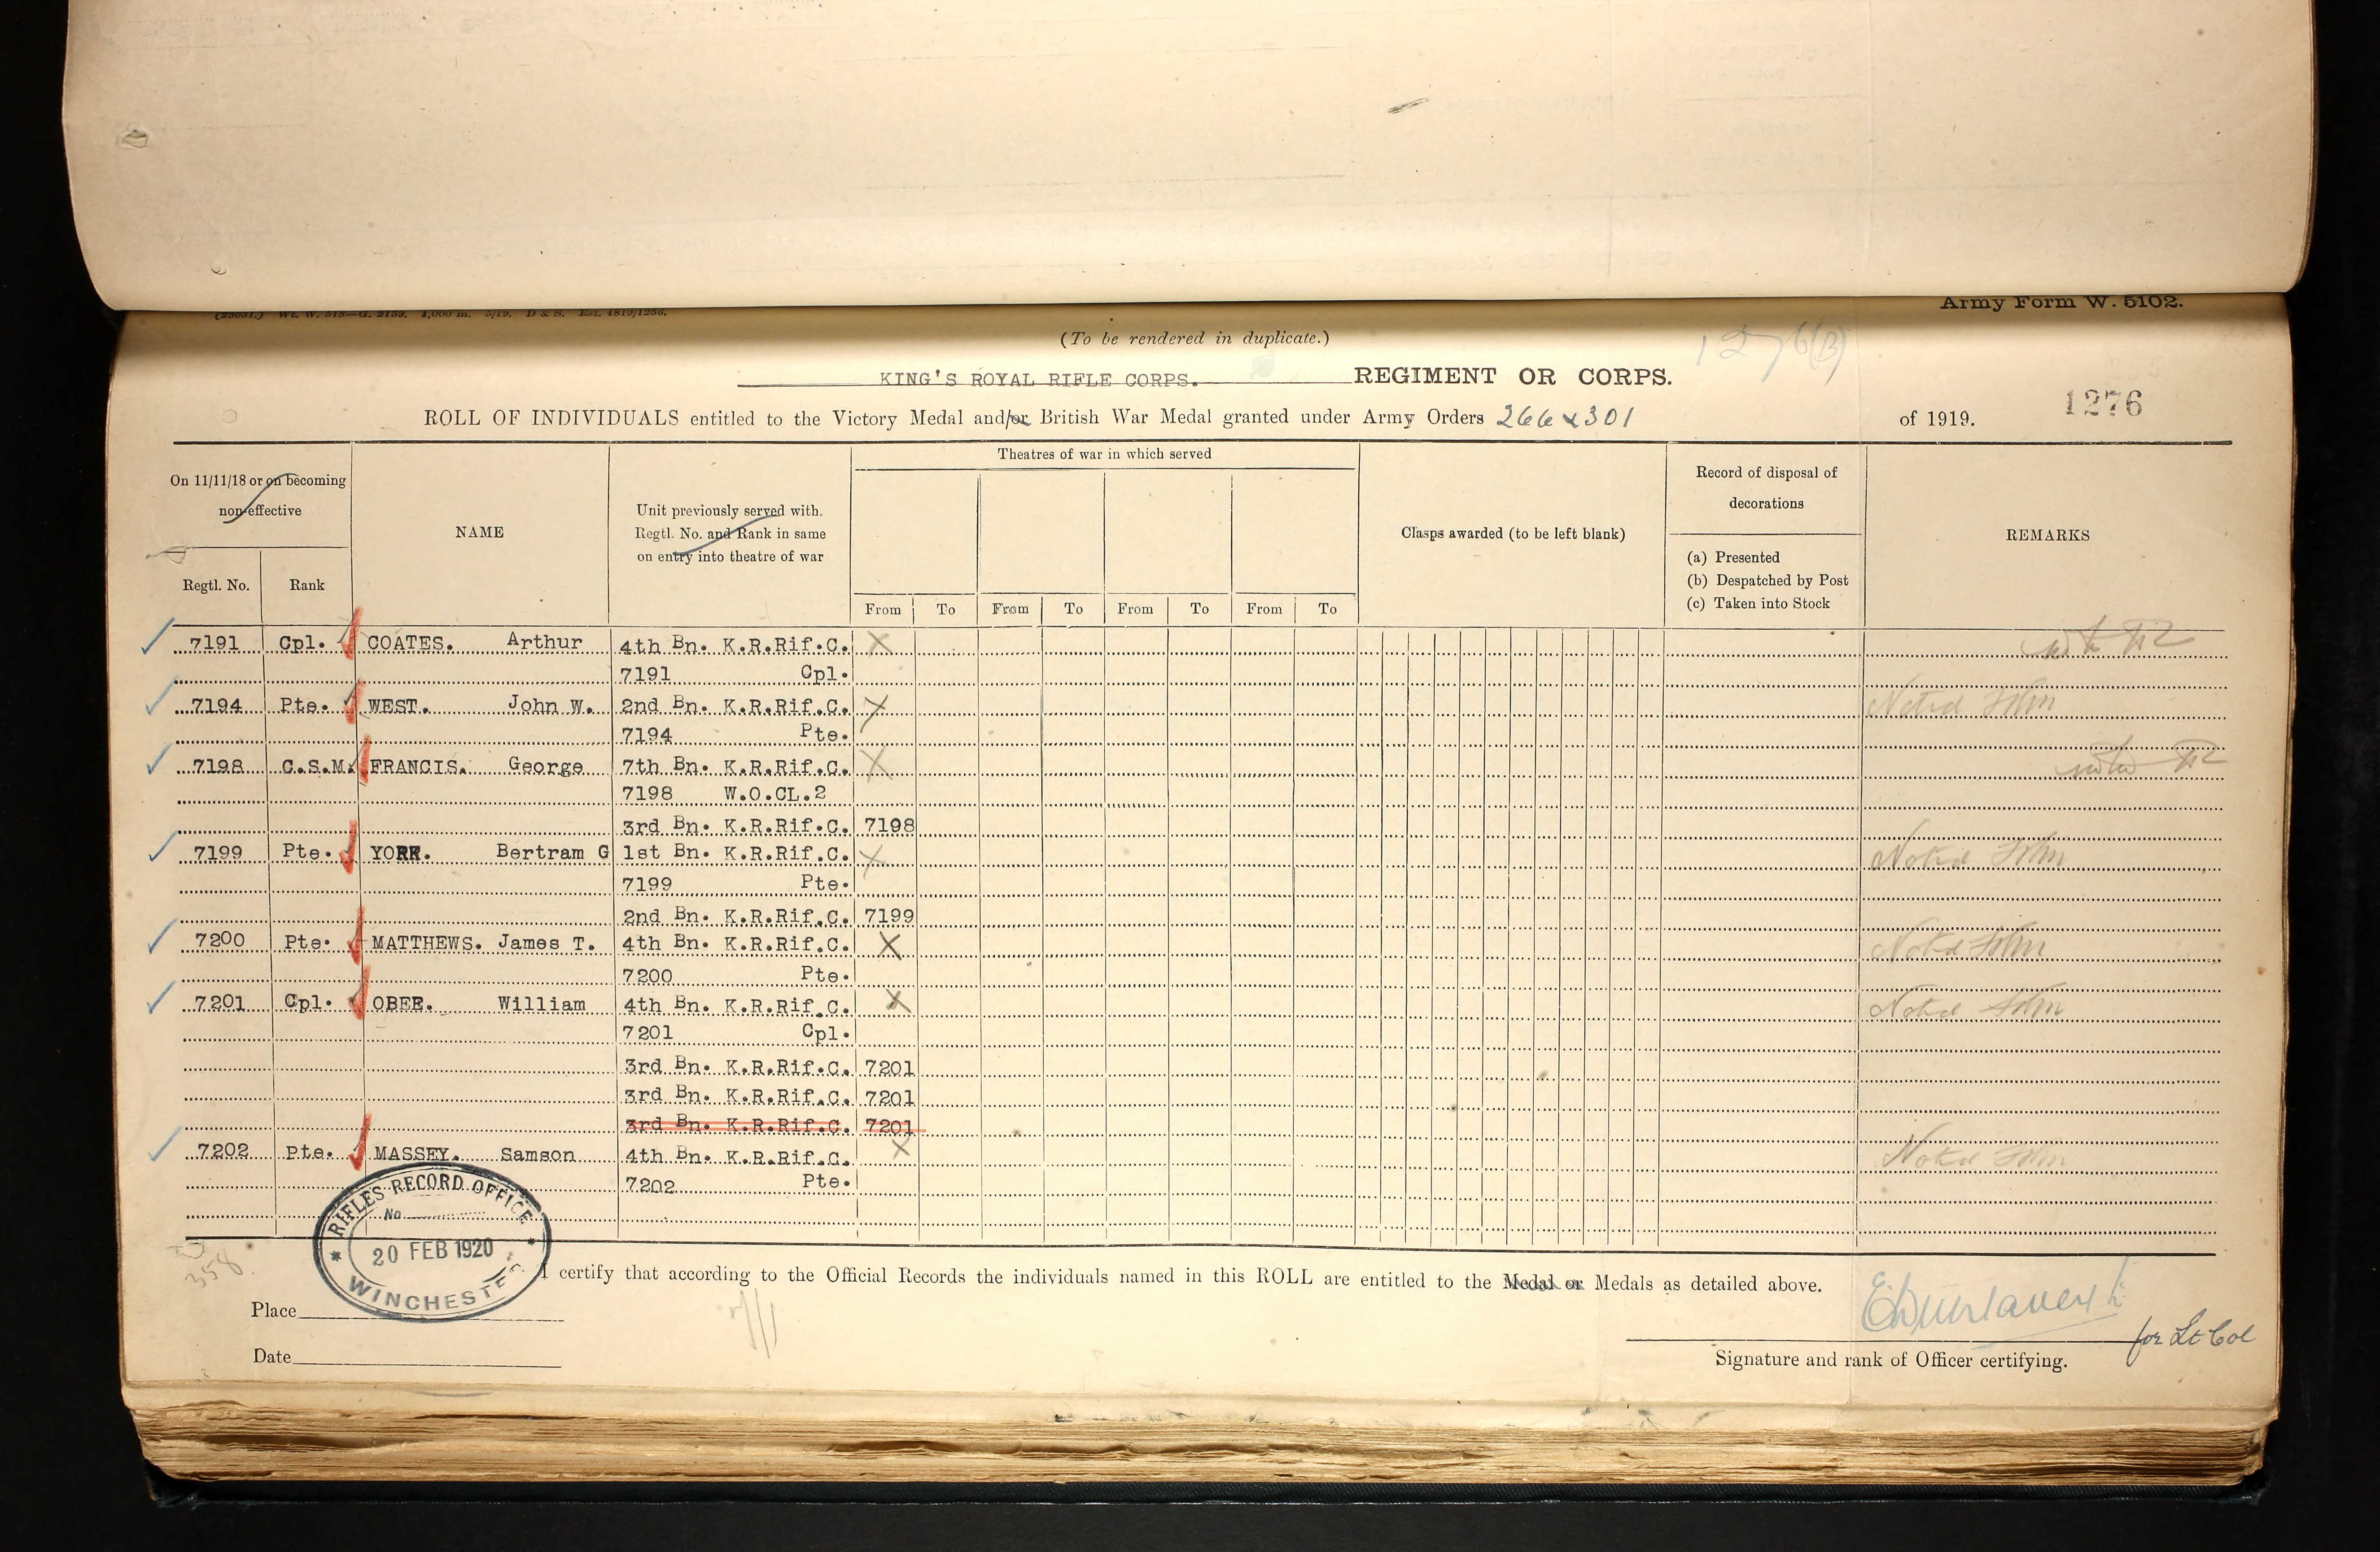 Army Form W. 5102.
(To be rendered in duplicate.)
1276(B)
KING'S ROYAL RIFLE CORPS. REGIMENT OR CORPS.
1276
ROLL OF INDIVIDUALS entitled to the Victory Medal and/or British War Medal granted under Army Orders 266 & 301 of 1919.
Theatres of war in which served
On 11/11/18 or on becoming non-effective
NAME
Unit previously served with.
Regtl. No. and Rank in same
on entry into theatre of war
Clasps awarded (to be left blank)
Record of disposal of
decorations
REMARKS
(a) Presented
(b) Despatched by Post
(c) Taken into Stock
Regtl. No. Rank
From To From To From To From To
7191 Cpl. COATES. Arthur 4th Bn. K.R.Rif.C. X
7191 Cpl.
7194 Pte. WEST. John W. 2nd Bn. K.R.Rif.C. X Noted
7194 Pte.
7198 C.S.M. FRANCIS. George 7th Bn. K.R.Rif.C. X
7198 W.O.CL.2
3rd Bn. K.R.Rif.C. 7198
7199 Pte. YORK. Bertram G 1st Bn. K.R.Rif.C. X Noted
7199 Pte.
2nd Bn. K.R.Rif.C. 7199
7200 Pte. MATTHEWS. James T. 4th Bn. K.R.Rif.C. X Noted
7200 Pte.
7201 Cpl. OBEE. William 4th Bn. K.R.Rif.C. X Noted
7201 Cpl.
3rd Bn. K.R.Rif.C. 7201
3rd Bn. K.R.Rif.C. 7201
3rd Bn. K.R.Rif.C. 7201
7202 Pte. MASSEY. Samson 4th Bn. K.R.Rif.C. X Noted
7202 Pte.
RIFLES RECORD OFFICE
No
20 FEB 1920
WINCHESTER
358
I certify that according to the Official Records the individuals named in this ROLL are entitled to the Medal or Medals as detailed above.
Place
for Lt Col
Date
Signature and rank of Officer certifying.